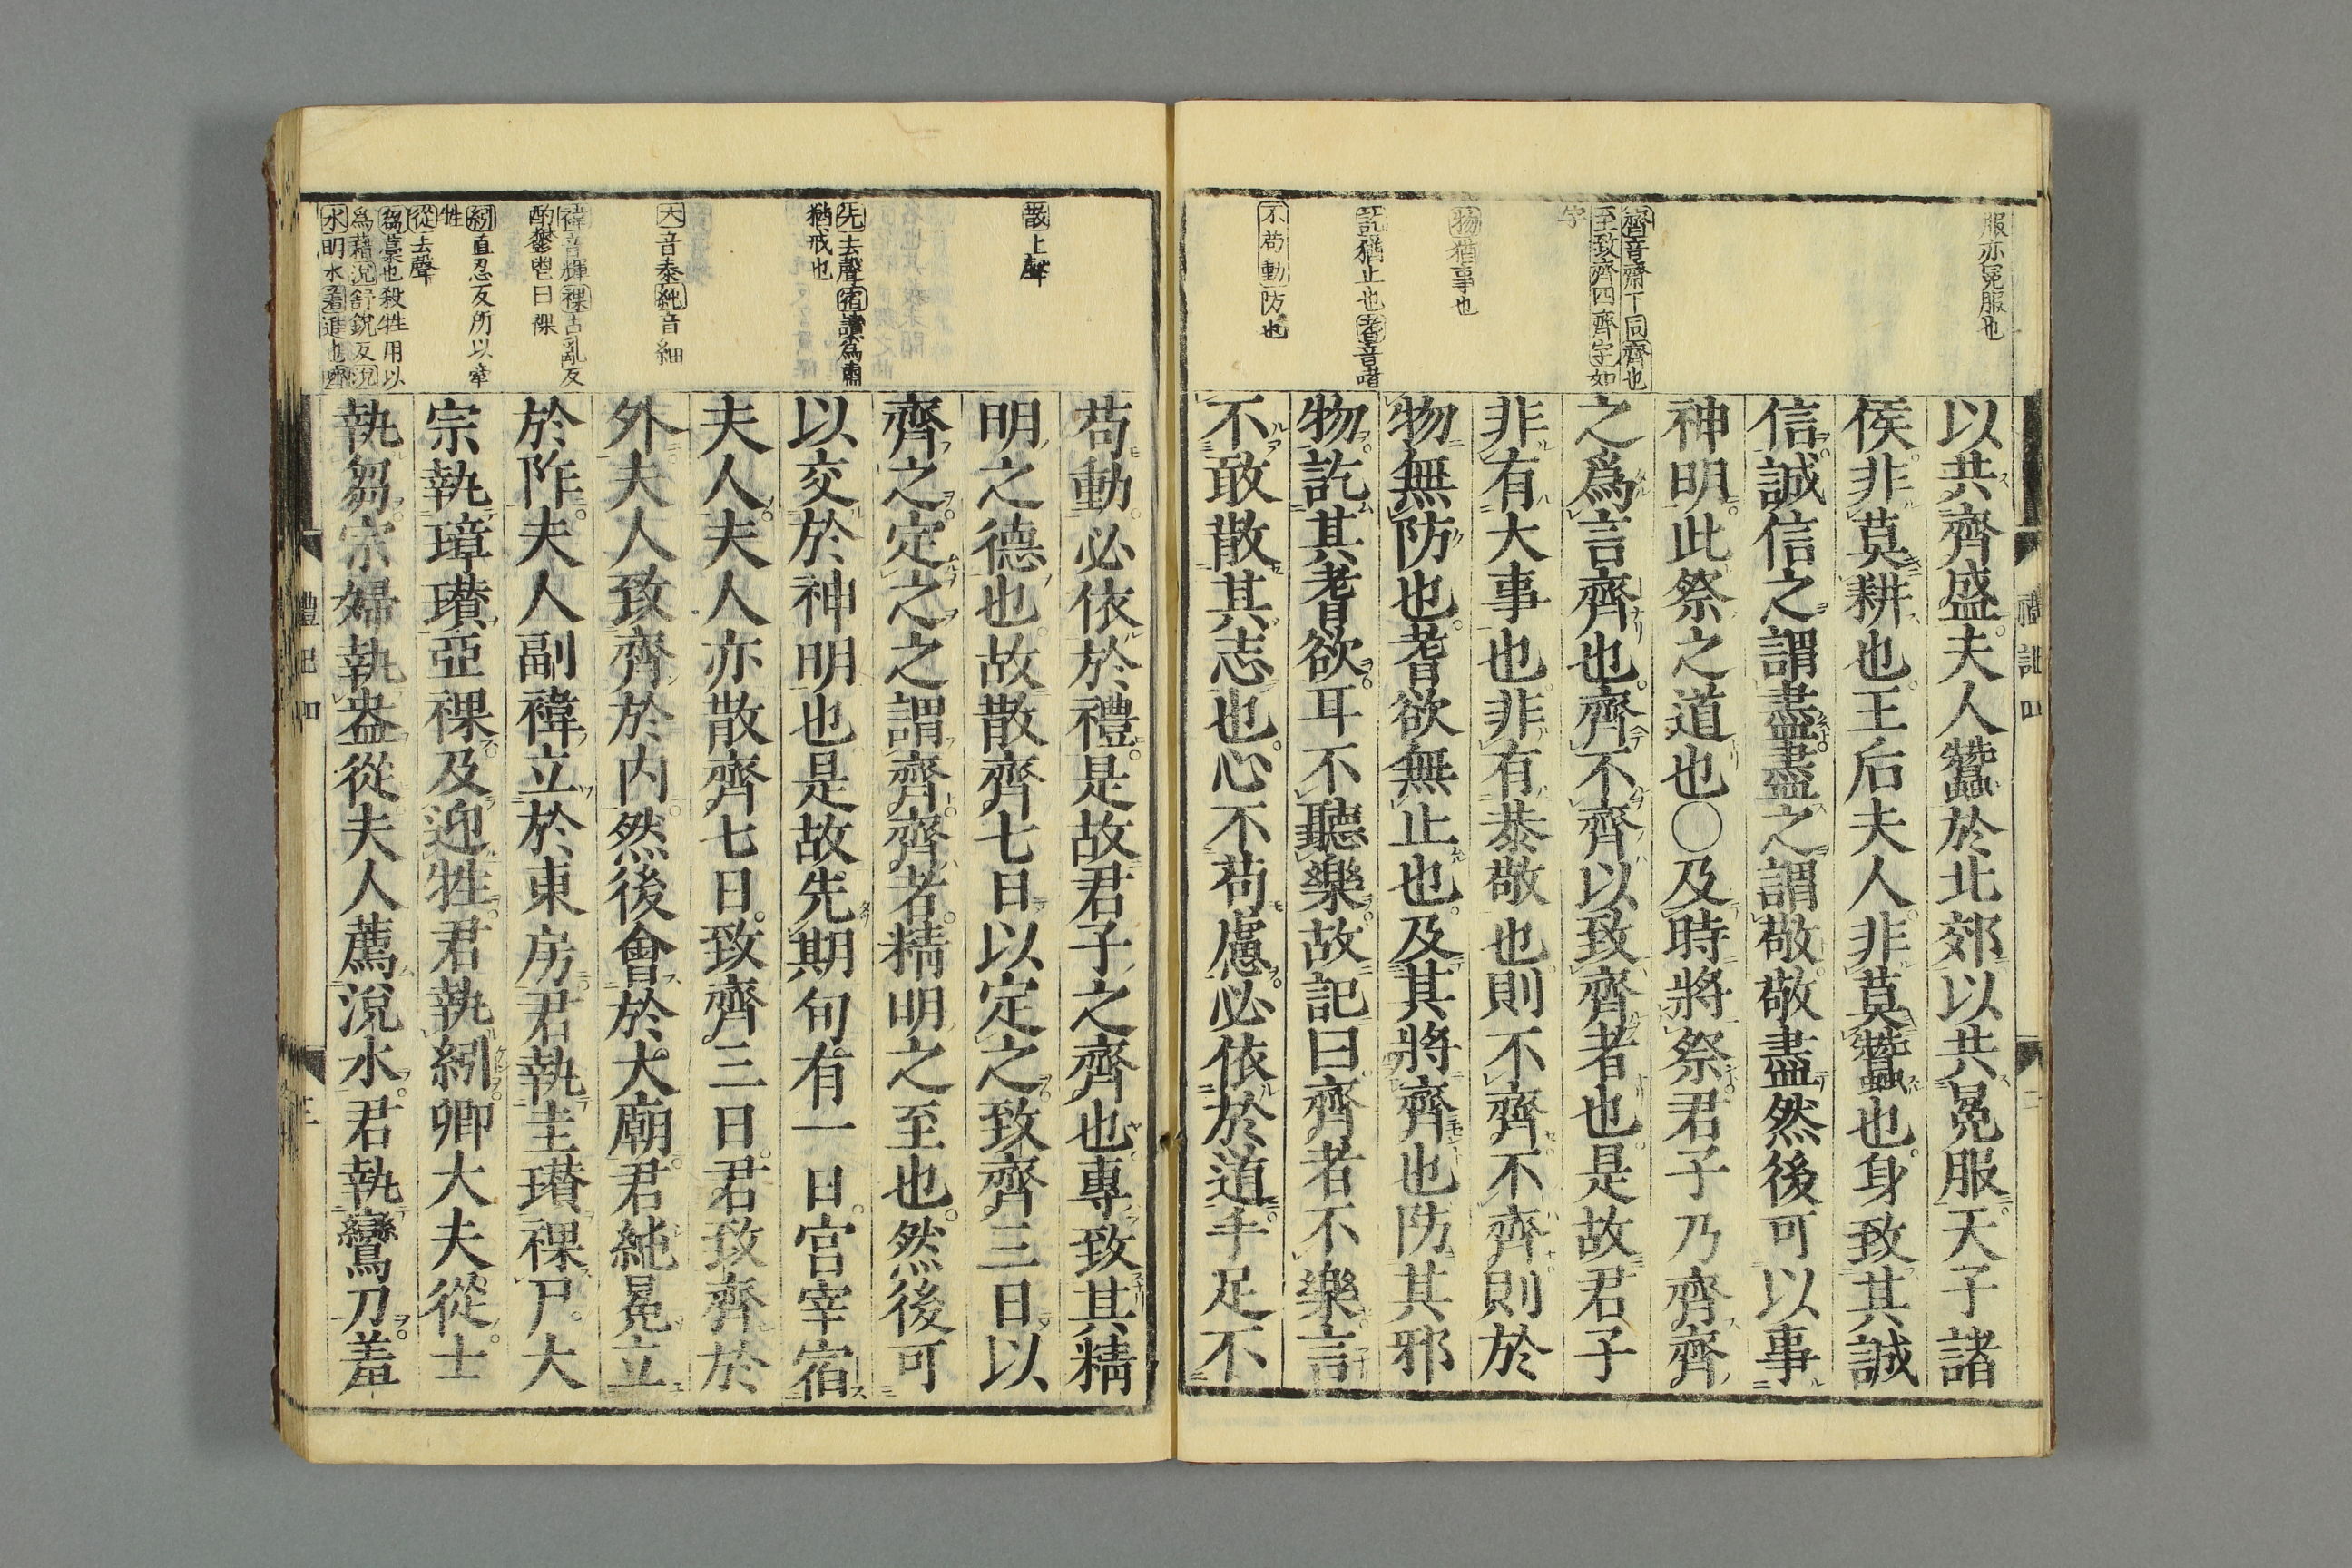 服亦冕服也
齊音齋下同齊也
至致齊四齊字如
字
物猶事也
訖猶止也耆音嗜
不苟動防也
以共齊盛夫人蠶於北郊以共冕服天子諸
侯非莫耕也王后夫人非莫蠶也身致其誠
信誠信之謂盡盡之謂敬敬盡然後可以事
神明此祭之道也○及時將祭君子乃齊齊
之爲言齊也齊不齊以致齊者也是故君子
非有大事也非有恭敬也則不齊不齊則於
物無防也耆欲無止也及其將齊也防其邪
物訖其耆欲耳不聽樂故記曰齊者不樂言
不敢散其志也心不苟慮必依於道手足不
散上聲
先去聲宿讀爲肅
猶戒也
大音泰純音緇
褘音輝祼古亂反
酌鬱鬯曰祼
紖直忍反所以牽
牲
從去聲
芻藁也殺牲用以
爲藉涗舒銳反涗
水明水羞進也嚌
苟動必依於禮是故君子之齊也專致其精
明之德也故散齊七日以定之致齊三日以
齊之定之之謂齊齊者精明之至也然後可
以交於神明也是故先期旬有一日宮宰宿
夫人夫人亦散齊七日致齊三日君致齊於
外夫人致齊於內然後會於大廟君純冕立
於阼夫人副褘立於東房君執圭瓚祼尸大
宗執璋瓚亞祼及迎牲君執紖卿大夫從士
執芻宗婦執盎從夫人薦涗水君執鸞刀羞
禮記四
三